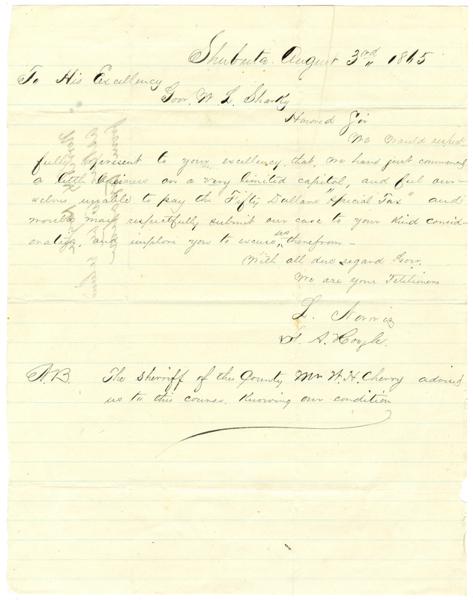 Shubuta August 3rd 1865
To His Excellency
Gov. W. L. Sharky
Honored Sir
We would respect
fully represent to your excellency that, we have just commenced
a little business on a very limited capital, and feel our
selves unable to pay the Fifty Dollars "Special Tax" and
most respectfully submit our case to your kind consid-
eration, and implore you to excuse us therefrom -
With all due regard Gov.
We are your Petitioners
L. Norris
A. Hough
N.B. The sherriff of this County Mr W. H. Cherry advised
us to this course, knowing our condition